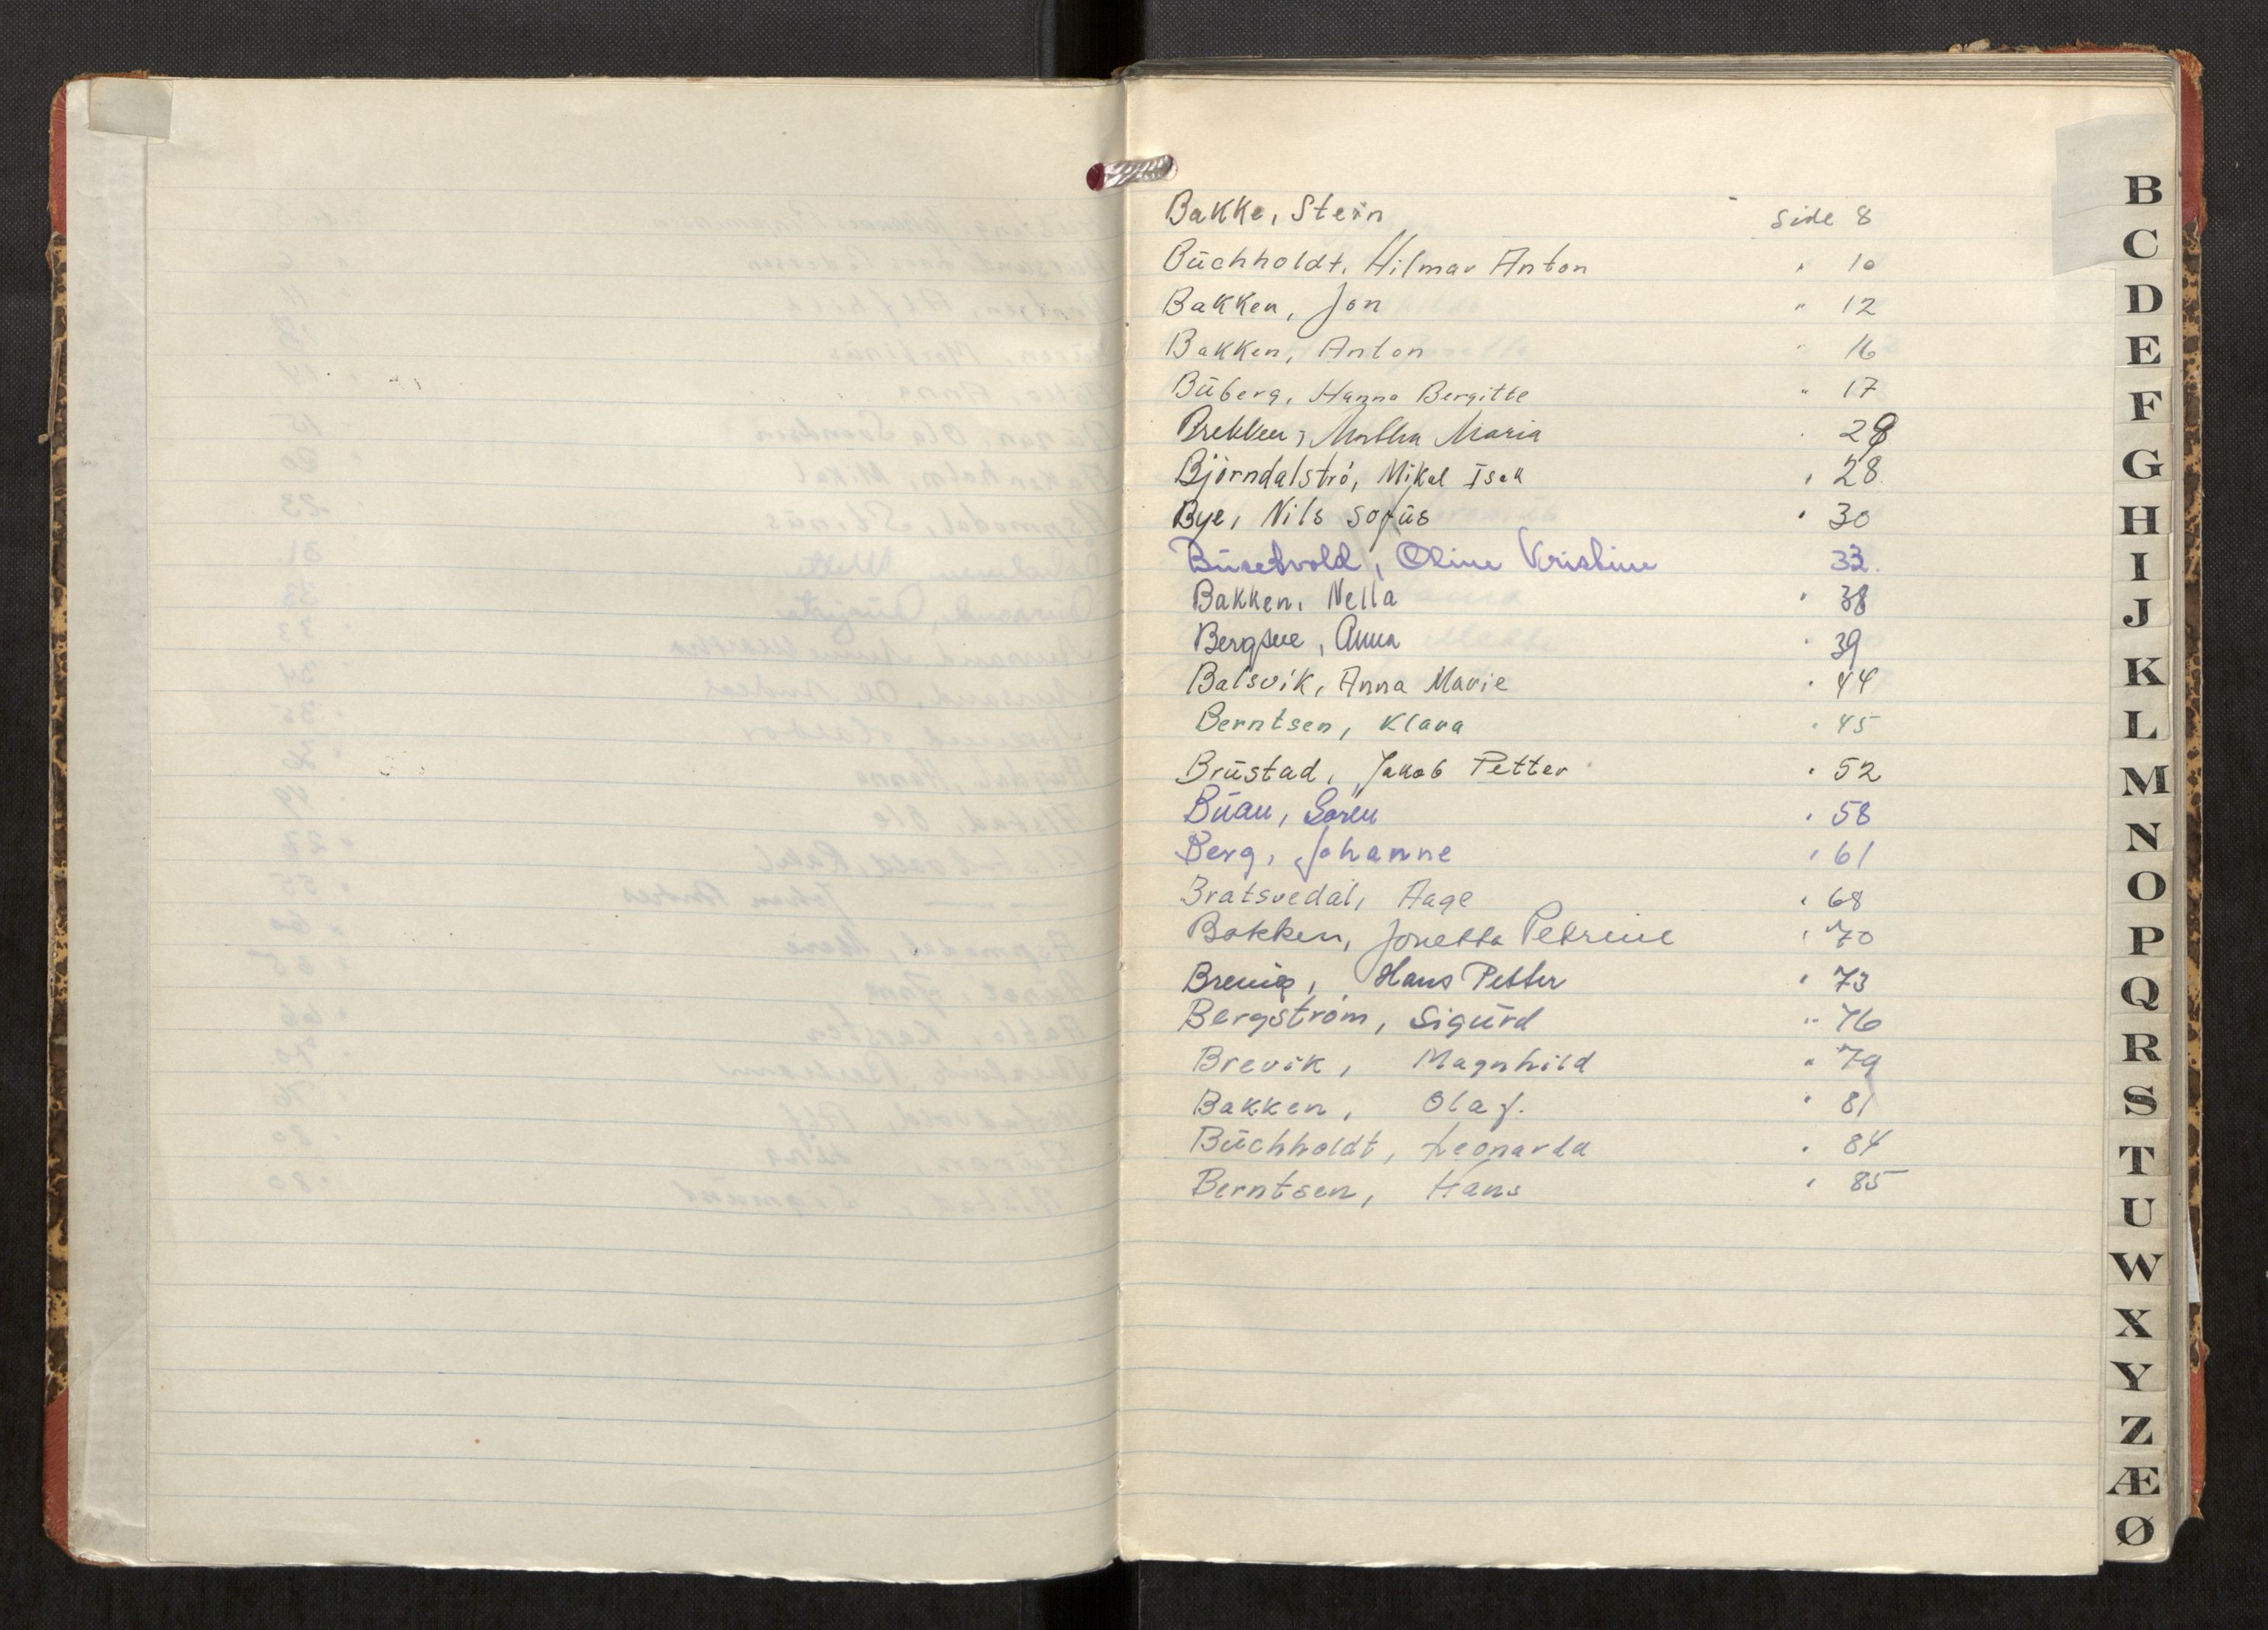 Bakke, Stein - side 8
Büchholdt, Hilmar Anton " 10
Bakken, Jon " 12
Bakken, Anton " 16
Büberg, Hanna Bergitte " 17
Brekken, Martha Maria " 29
Björndalströ, Mikal Isak " 28
Bye, Nils Sofüs " 30
Büsetvold, Oline Kristine 33.
Bakken, Nella " 38
Bergsve, Anna " 39
Balsvik, Anna Marie " 44
Berntsen, Klara " 45
Brüstad, Jakob Petter " 52
Büan, Sören " 58
Berg, Johanne " 61
Bratsvedal, Aage " 68
Bakken, Jonetta Petrine " 70
Hans Petter " 73
Bergström, Sigürd " 76
Brevik, Magnhild " 79
Bakken, Olaf. " 81
Büchholdt, Leonarda " 84
Berntsen, Hans " 85
B
C
D
E
F
G
H
I
J
K
L
M
N
O
P
Q
R
S
T
U
W
X
Y
Z
Æ
Ø